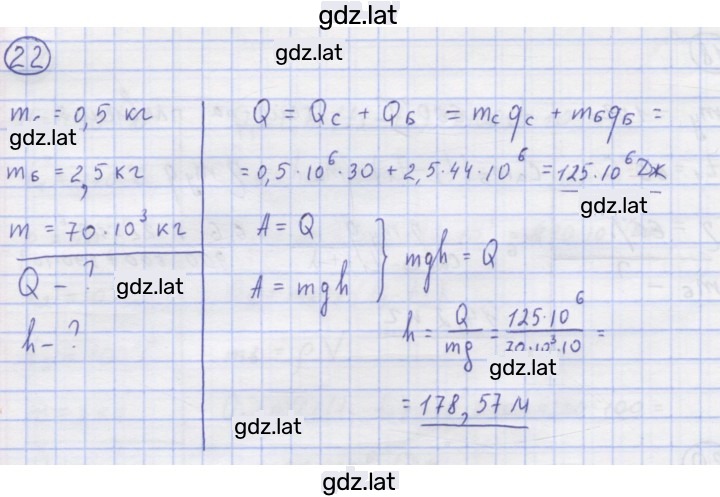 gdz.lat
22
gdz.lat
m = 0,5 кг
gdz.lat
mБ = 2,5 кг
m = 70·10³ кг
Q – ?
gdz.lat
h – ?
Q = Qс + QБ = mсqс + mБqБ =
= 0,5·10⁶·30 + 2,5·44·10⁶ = 125·10⁶ Дж
gdz.lat
A = Q
A = mgh
} mgh = Q
h = Q/mg = 125·10⁶/70·10³·10 =
gdz.lat
= 178,57 м
gdz.lat
gdz.lat